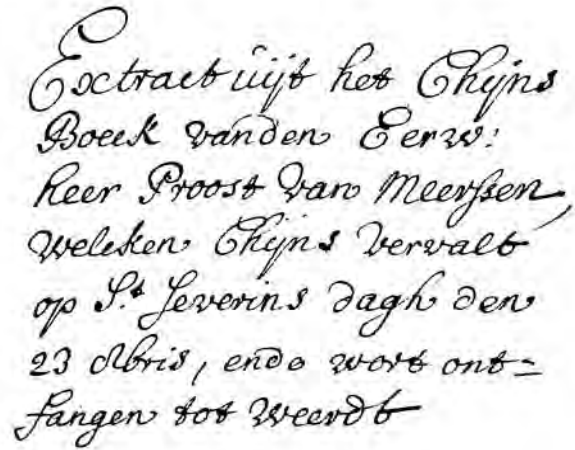 Exctraet uijt het Chijns
Boeck vanden Eerw:
heer Proost van Meerssen
welcken Chijns vervalt
op S.t Severins dagh den
23 8bris, ende wort ont=
fangen tot Weerdt